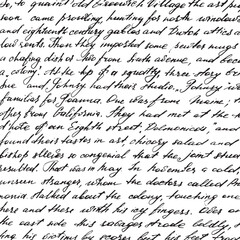 so, to quaint old Greenwich Village the art peo
soon came prowling, hunting for north windows
and eighteenth century gables and Dutch attics a
low rents. Then they imported some pewter mugs
a chafing dish or two from Sixth avenue, and beca
a colony. At the top of a squatty, three story bri
Sue and Johnsy had their studio. Johnsy w
familiar for Joanna. One was from Maine; t
other from California. They had met at the t
d'hote of an Eighth street Delmonico's, and
found their tastes in art, chicory salad and
bishop sleeves so congenial that the joint stud
resulted. That was in May. In November a cold,
unseen stranger, whom the doctors called Pn
monia stalked about the colony, touching one
here and there with his icy fingers. Over on
the east side this ravager strode boldly,
ing his victims by scores, but his feet trod